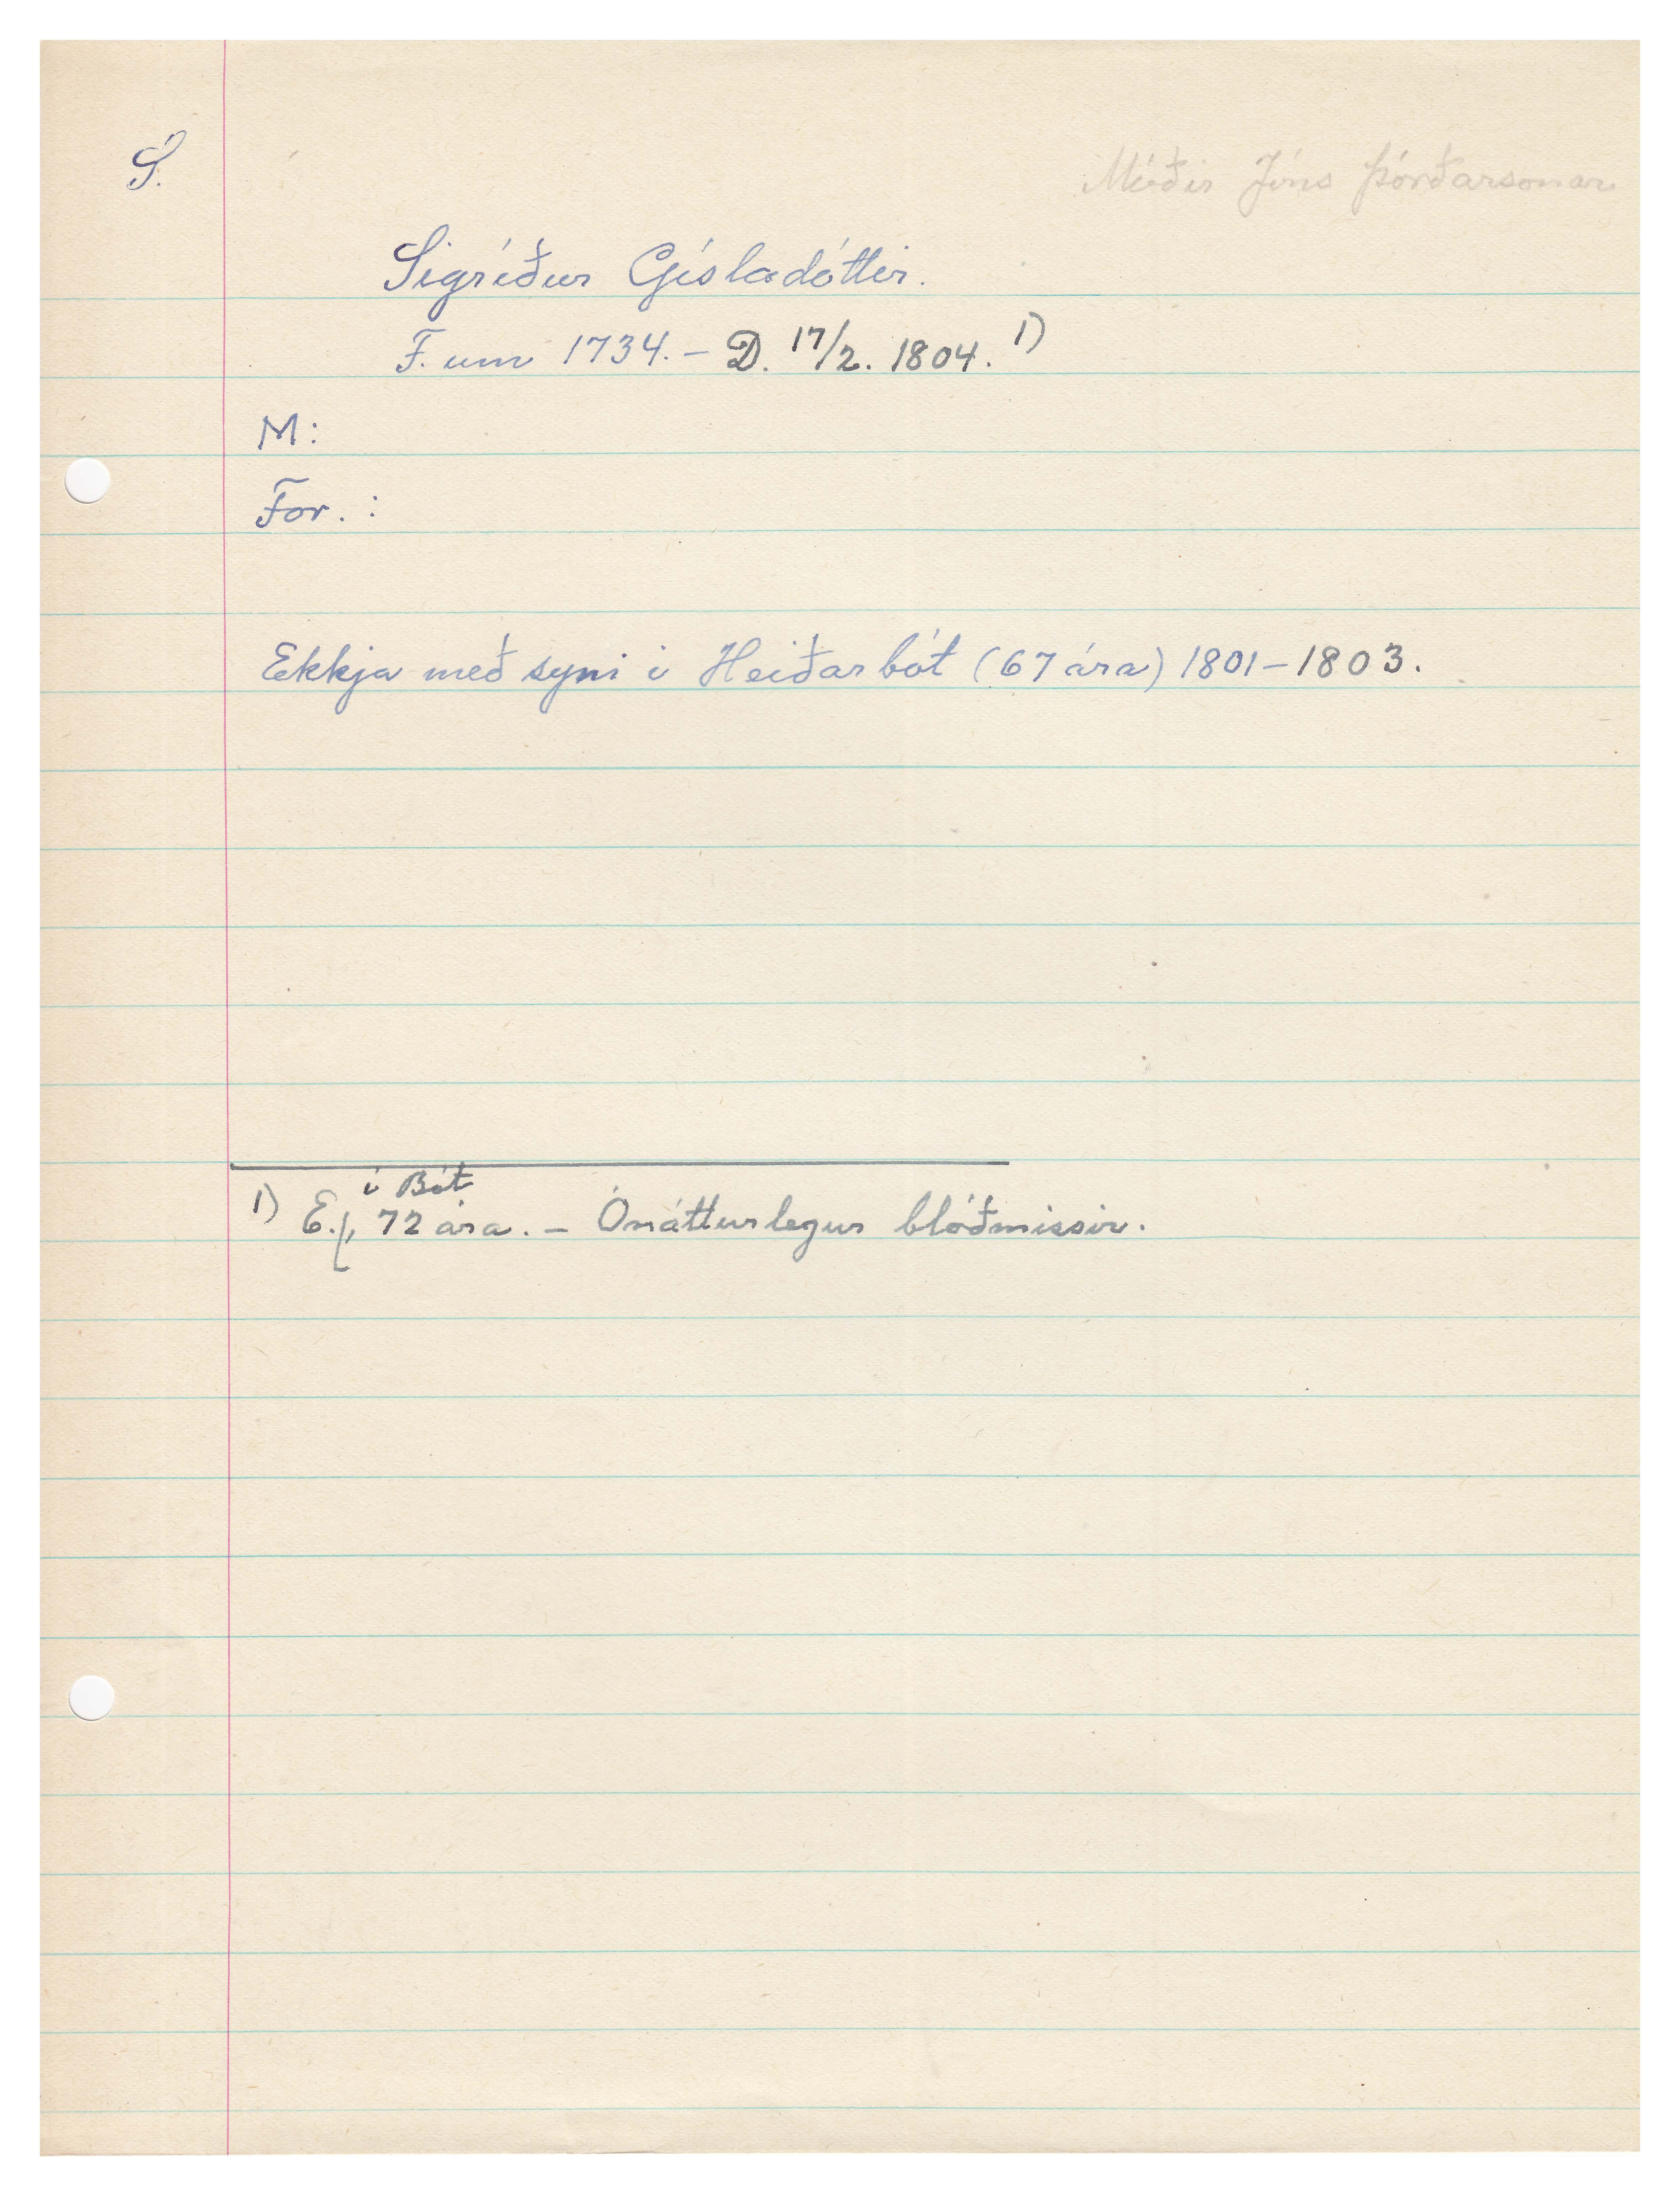 S.
Móðir Jóns Þórðarsonar
Sigríður Gísladóttir.
F. um 1734. – D. 17/2. 1804. 1)
M:
For. :
Ekkja með syni í Heiðarbót (67 ára) 1801–1803.
í Bót
1) E., 72 ára. – Ónátturlegur blóðmissir.